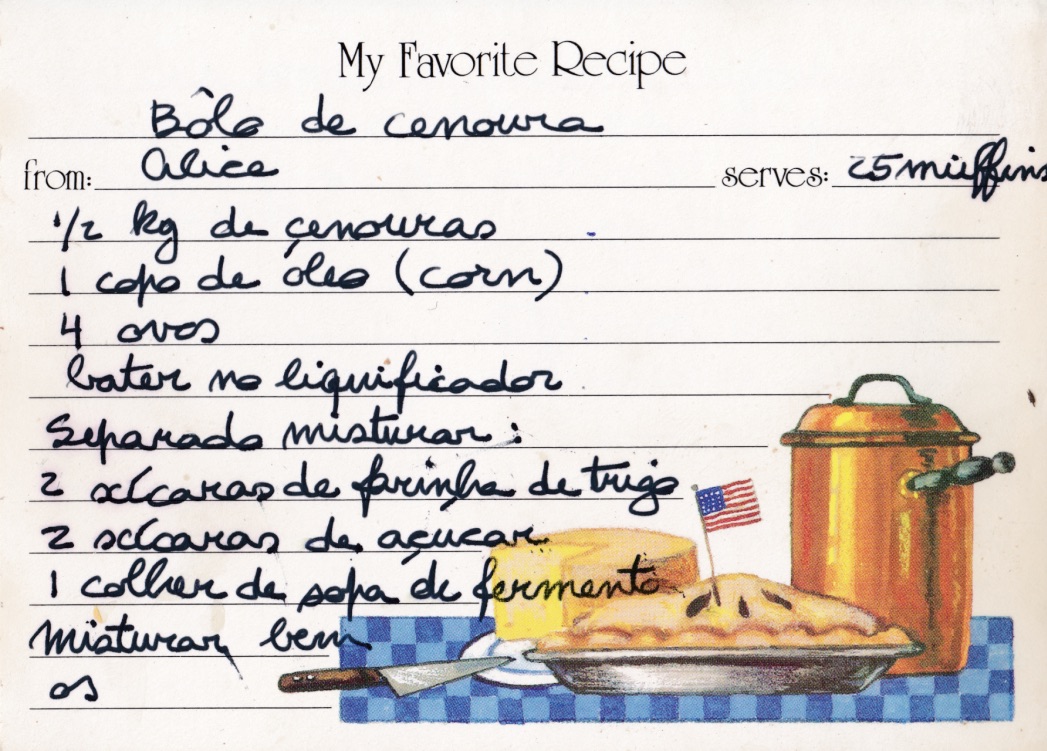 My Favorite Recipe
Bôlo de cenoura
from: Alice serves: 25 muffins
1/2 kg de cenouras
1 copo de óleo (corn)
4 ovos
bater no liquificador
Separado misturar:
2 xícaras de farinha de trigo
2 xícaras de açucar
1 colher de sopa de fermento
Misturar bem
os